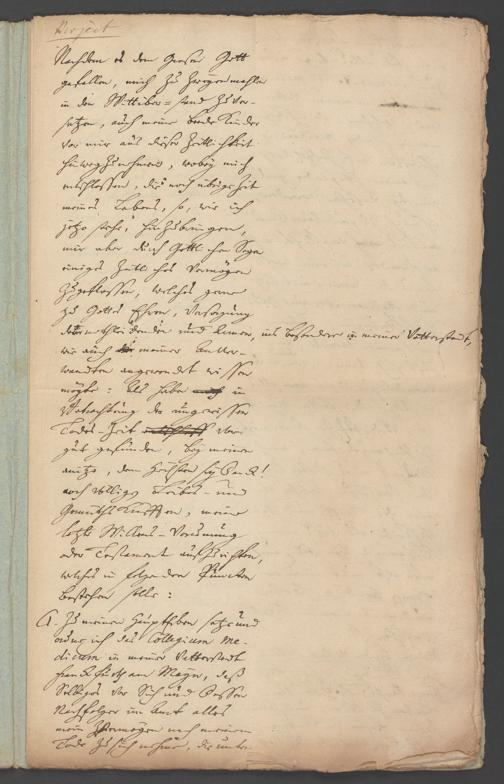 Project
3
Nachdem es dem Grosen Gott
gefallen, mich zu zweyenmahlen
in den Wittiber-stand zu ver-
setzen, auch meine beede Kinder
vor mir aus dieser Zeitlichkeit
hinwegzunehmen, wobey mich
entschlossen, die noch übrige Zeit
meines Lebens, so, wie ich
jetzo stehe, hinzubringen,
mir aber durch Göttlichen Segen
einiges Zeitliches Vermögen
zugeflossen, welches gerne
zu Gottes Ehren, Versorgung
der nothleidenden und Armen, ins besondere in meiner Vatterstadt,
wie auch meiner Anver-
wandten angewendet wissen
mögte: Als habe in
Betrachtung der ungewissen
Todes-Zeit vor
gut gefunden, bey meinen
anitzo, dem Höchsten sey Danck!
noch völligen Leibes- und
Gemüths Kräfften, meine
letzte Willens-Verordnung
oder Testament aufzurichten,
welches in folgenden Puncten
bestehen solle:
Zu meinen Haupt Erben setze und
ordne ich das Collegium Me-
dicum in meiner Vatterstadt
Franckfurth am Mayn, daß
Selbiges vor Sich und Dessen
Nachfolger im Amt alles
mein Vermögen nach meinem
Tode zu sich nehme, die unter-